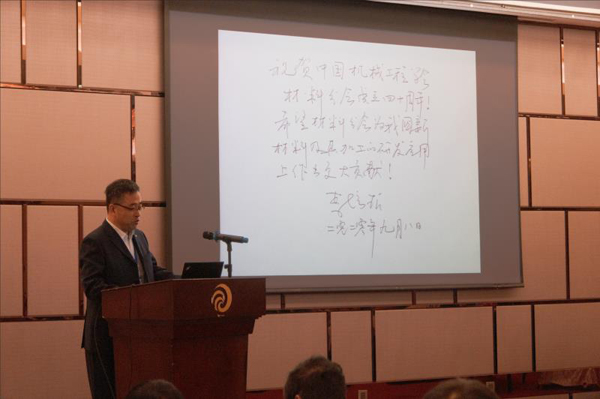 祝贺中国机械工程学会
材料分会成立四十周年!
希望材料分会为我国新
材料及其加工的研发应用
上作出更大贡献!
二零二零年九月八日